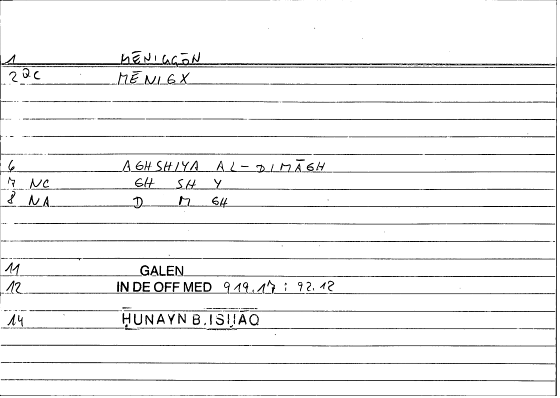 1 MĒNIGGŌN
2 QC MĒNIGX
6 AGHSHIYA AL-DIMĀGH
7 NC GH SH Y
8 NA D M GH
11 GALEN
12 IN DE OFF MED 919.17 : 92.12
14 ḤUNAYN B.ISḤAQ